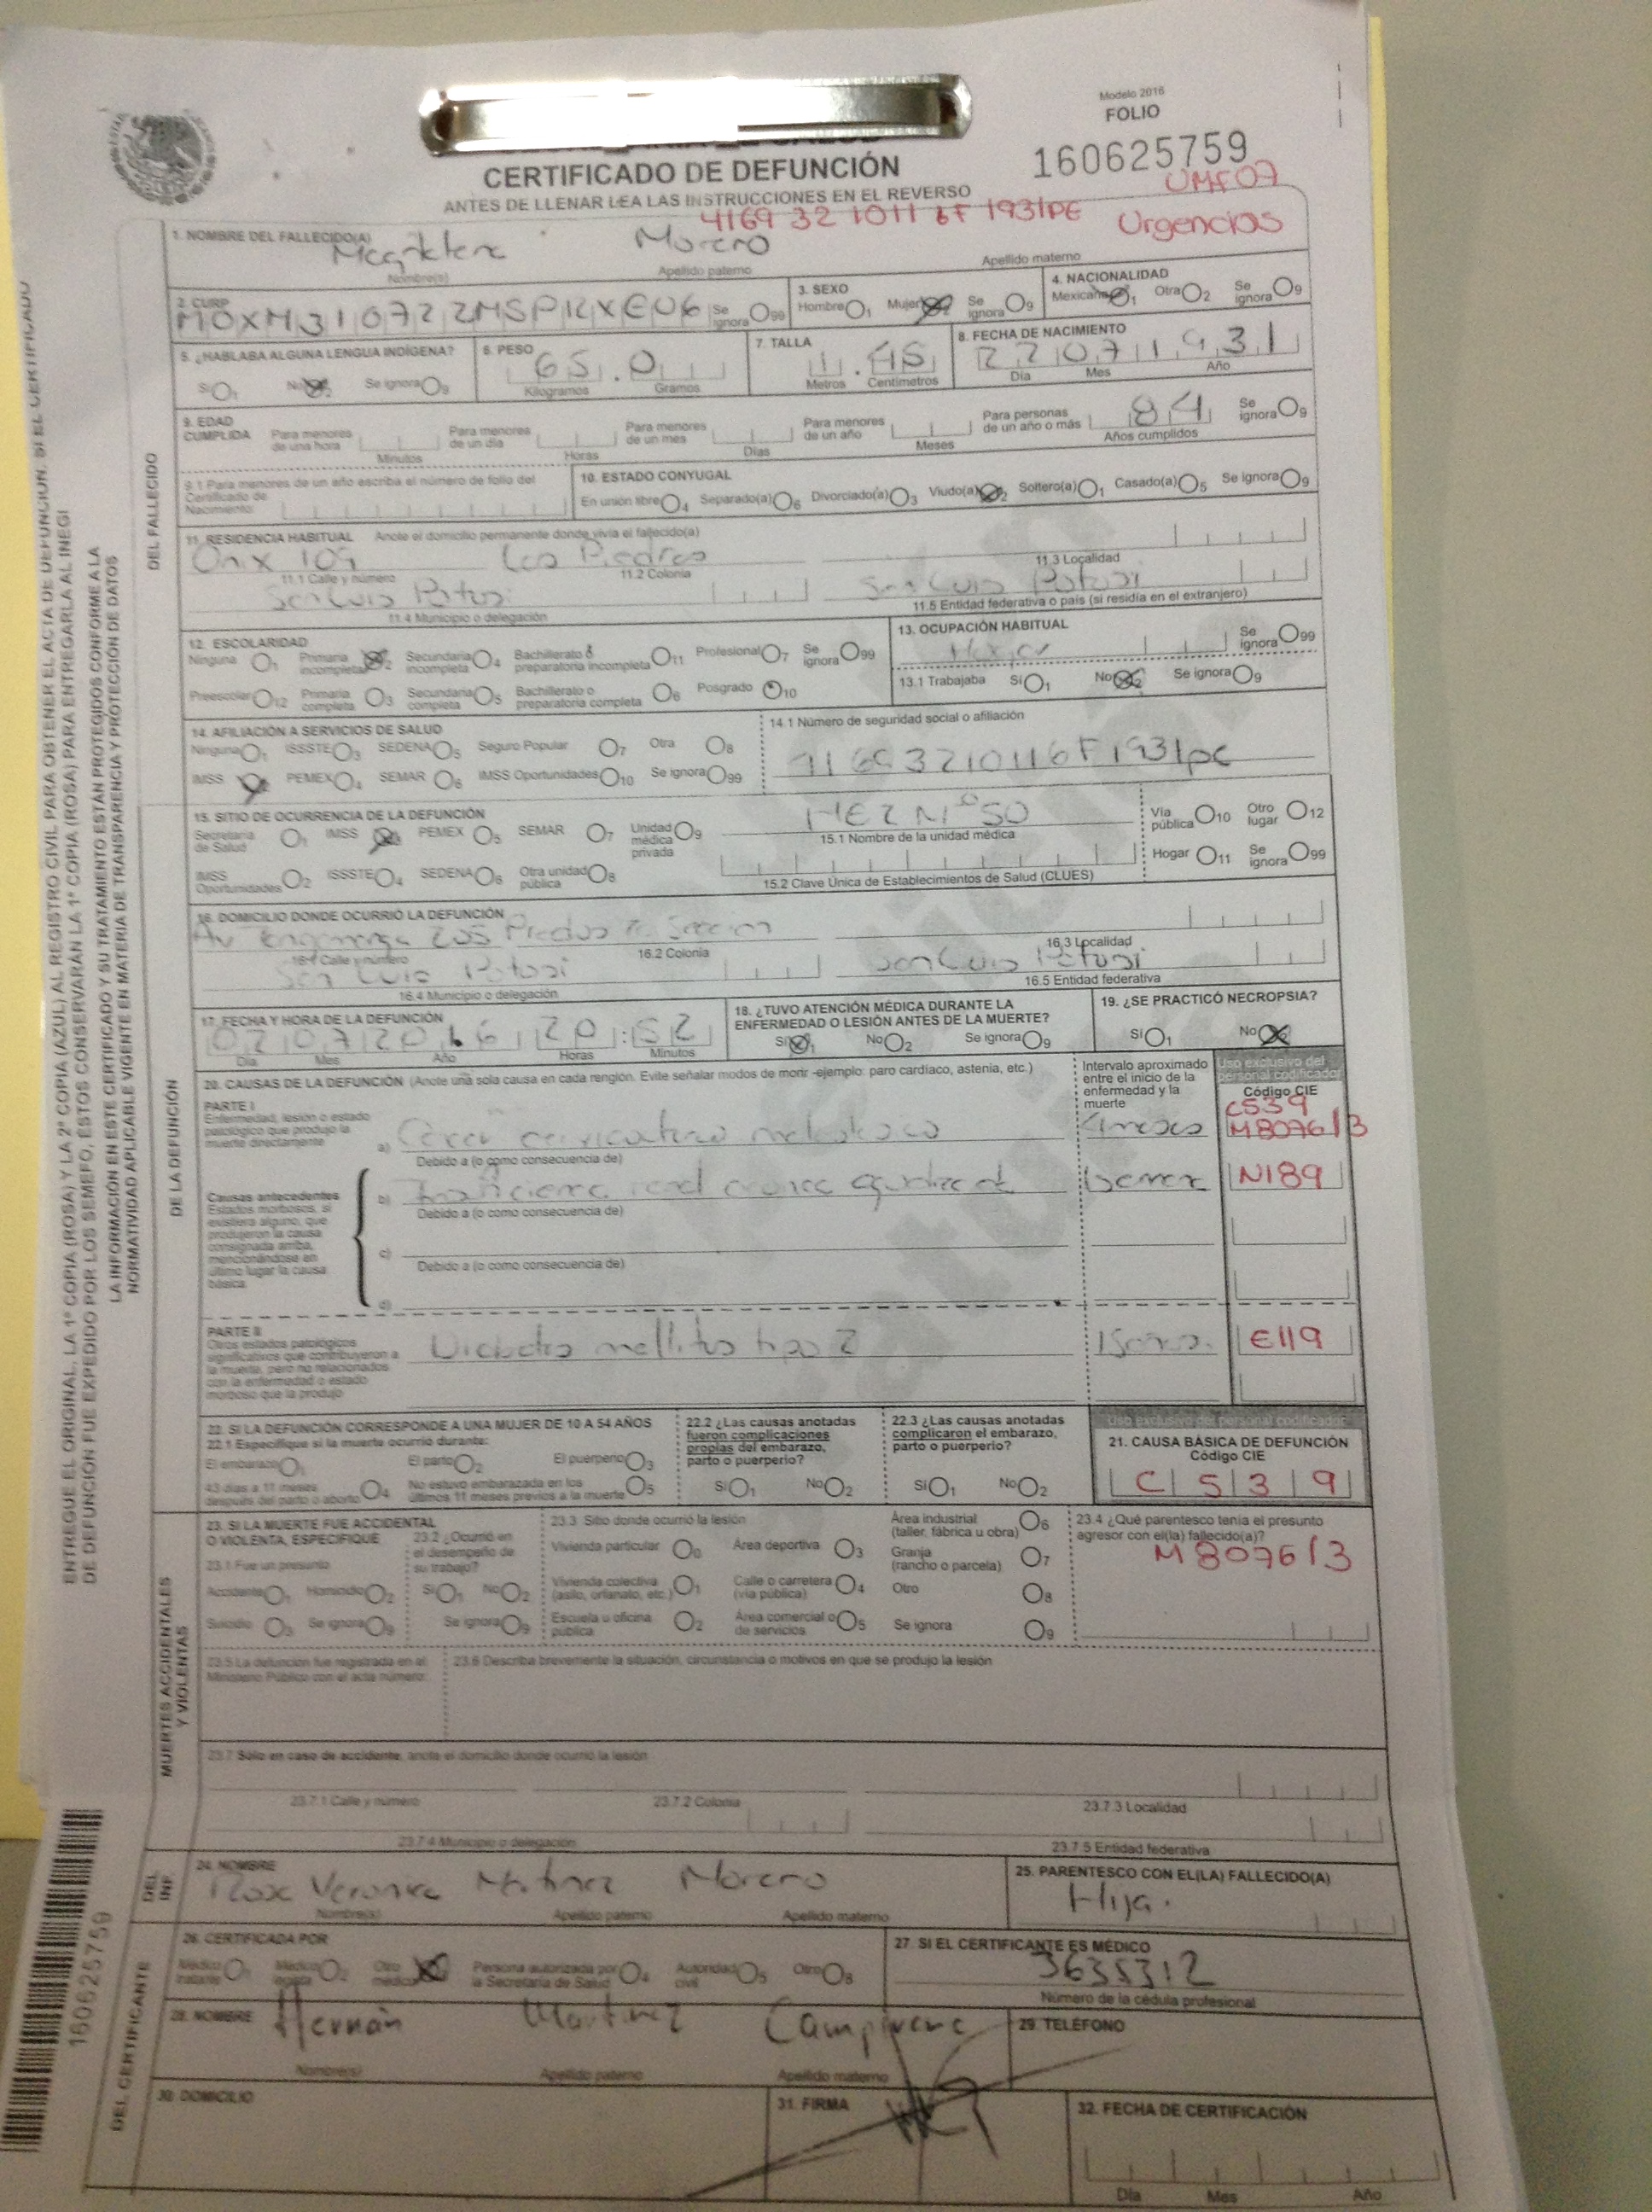 Modelo 2016
FOLIO
160625759
CERTIFICADO DE DEFUNCIÓN
ANTES DE LLENAR LEA LAS INSTRUCCIONES EN EL REVERSO
UMF07
4169 32 1011 6F 1931PE
Urgencias
1. NOMBRE DEL FALLECIDO(A)
Moreno
Nombre(s) Apellido paterno Apellido materno
2. CURP
MOXM310722MSPRXE06 Se ignora 99
3. SEXO
Hombre 1 Mujer 2 Se ignora 9
4. NACIONALIDAD
Mexicana 1 Otra 2 Se ignora 9
5. ¿HABLABA ALGUNA LENGUA INDÍGENA?
Sí 1 No 2 Se ignora 9
6. PESO
65.0
Kilogramos Gramos
7. TALLA
1.45
Metros Centímetros
8. FECHA DE NACIMIENTO
22071931
Día Mes Año
9. EDAD CUMPLIDA
Para menores de una hora Minutos
Para menores de un día Horas
Para menores de un mes Días
Para menores de un año Meses
Para personas de un año o más 84 Años cumplidos
Se ignora 9
9.1 Para menores de un año escriba el número de folio del Certificado de Nacimiento:
10. ESTADO CONYUGAL
En unión libre 4 Separado(a) 6 Divorciado(a) 3 Viudo(a) 2 Soltero(a) 1 Casado(a) 5 Se ignora 9
11. RESIDENCIA HABITUAL Anote el domicilio permanente donde vivía el fallecido(a)
Onix 109 Las Piedras
11.1 Calle y número 11.2 Colonia 11.3 Localidad
San Luis Potosi San Luis Potosi
11.4 Municipio o delegación 11.5 Entidad federativa o país (si residía en el extranjero)
12. ESCOLARIDAD
Ninguna 1 Primaria incompleta 2 Secundaria incompleta 4 Bachillerato o preparatoria incompleta 11 Profesional 7 Se ignora 99
Preescolar 12 Primaria completa 3 Secundaria completa 5 Bachillerato o preparatoria completa 6 Posgrado 10
13. OCUPACIÓN HABITUAL
Hogar
Se ignora 99
13.1 Trabajaba Sí 1 No 2 Se ignora 9
14. AFILIACIÓN A SERVICIOS DE SALUD
Ninguna 1 ISSSTE 3 SEDENA 5 Seguro Popular 7 Otra 8
IMSS 2 PEMEX 4 SEMAR 6 IMSS Oportunidades 10 Se ignora 99
14.1 Número de seguridad social o afiliación
15. SITIO DE OCURRENCIA DE LA DEFUNCIÓN
Secretaría de Salud 1 IMSS 3 PEMEX 5 SEMAR 7 Unidad médica privada 9
IMSS Oportunidades 2 ISSSTE 4 SEDENA 6 Otra unidad pública 8
HGZ N° 50
15.1 Nombre de la unidad médica
15.2 Clave Única de Establecimientos de Salud (CLUES)
Vía pública 10 Otro lugar 12
Hogar 11 Se ignora 99
16. DOMICILIO DONDE OCURRIÓ LA DEFUNCIÓN
Av Tangamanga 205 Prados
16.1 Calle y número 16.2 Colonia 16.3 Localidad
San Luis Potosi San Luis Potosi
16.4 Municipio o delegación 16.5 Entidad federativa
17. FECHA Y HORA DE LA DEFUNCIÓN
02072016 20:52
Día Mes Año Horas Minutos
18. ¿TUVO ATENCIÓN MÉDICA DURANTE LA ENFERMEDAD O LESIÓN ANTES DE LA MUERTE?
Sí 1 No 2 Se ignora 9
19. ¿SE PRACTICÓ NECROPSIA?
Sí 1 No 2
20. CAUSAS DE LA DEFUNCIÓN (Anote una sola causa en cada renglón. Evite señalar modos de morir -ejemplo: paro cardiaco, astenia, etc.)
Intervalo aproximado entre el inicio de la enfermedad y la muerte
Uso exclusivo del personal codificador
Código CIE
PARTE I
Enfermedad, lesión o estado patológico que produjo la muerte directamente
a) Cancer cervicouterino metastasico
C539
M8076/3
Debido a (o como consecuencia de)
Causas antecedentes
Estados morbosos, si existiera alguno, que produjeron la causa consignada arriba, mencionándose en último lugar la causa básica
b) Insuficiencia renal cronica agudizada
N189
Debido a (o como consecuencia de)
c)
Debido a (o como consecuencia de)
d)
PARTE II
Otros estados patológicos significativos que contribuyeron a la muerte, pero no relacionados con la enfermedad o estado morboso que la produjo
Diabetes mellitus tipo 2
E119
22. SI LA DEFUNCIÓN CORRESPONDE A UNA MUJER DE 10 A 54 AÑOS
22.1 Especifique si la muerte ocurrió durante:
El embarazo 1 El parto 2 El puerperio 3
43 días a 11 meses después del parto o aborto 4 No estuvo embarazada en los últimos 11 meses previos a la muerte 5
22.2 ¿Las causas anotadas fueron complicaciones propias del embarazo, parto o puerperio?
Sí 1 No 2
22.3 ¿Las causas anotadas complicaron el embarazo, parto o puerperio?
Sí 1 No 2
Uso exclusivo del personal codificador
21. CAUSA BÁSICA DE DEFUNCIÓN
Código CIE
C539
23. SI LA MUERTE FUE ACCIDENTAL O VIOLENTA, ESPECIFIQUE
23.1 Fue un presunto
Accidente 1 Homicidio 2
Suicidio 3 Se ignora 9
23.2 ¿Ocurrió en el desempeño de su trabajo?
Sí 1 No 2
Se ignora 9
23.3 Sitio donde ocurrió la lesión
Vivienda particular 0 Área deportiva 3 Área industrial (taller, fábrica u obra) 6
Vivienda colectiva (asilo, orfanato, etc.) 1 Calle o carretera (vía pública) 4 Granja (rancho o parcela) 7
Otro 8
Escuela u oficina pública 2 Área comercial o de servicios 5 Se ignora 9
23.4 ¿Qué parentesco tenía el presunto agresor con el(la) fallecido(a)?
M8076/3
23.5 La defunción fue registrada en el Ministerio Público con el acta número:
23.6 Describa brevemente la situación, circunstancia o motivos en que se produjo la lesión
23.7 Sólo en caso de accidente, anote el domicilio donde ocurrió la lesión
23.7.1 Calle y número 23.7.2 Colonia 23.7.3 Localidad
23.7.4 Municipio o delegación 23.7.5 Entidad federativa
24. NOMBRE
Rosa Veronica Martinez Moreno
Nombre(s) Apellido paterno Apellido materno
25. PARENTESCO CON EL(LA) FALLECIDO(A)
Hija.
26. CERTIFICADA POR
Médico tratante 1 Médico legista 2 Otro médico Persona autorizada por la Secretaría de Salud 4 Autoridad civil 5 Otro 8
27. SI EL CERTIFICANTE ES MÉDICO
3635312
Número de la cédula profesional
28. NOMBRE
Hernán Martinez
Nombre(s) Apellido paterno Apellido materno
29. TELÉFONO
30. DOMICILIO
31. FIRMA
32. FECHA DE CERTIFICACIÓN
Día Mes Año
DEL FALLECIDO
DE LA DEFUNCIÓN
MUERTES ACCIDENTALES Y VIOLENTAS
DEL INF.
DEL CERTIFICANTE
ENTREGUE EL ORIGINAL, LA 1ª COPIA (ROSA) Y LA 2ª COPIA (AZUL) AL REGISTRO CIVIL PARA OBTENER EL ACTA DE DEFUNCIÓN. SI EL CERTIFICADO
DE DEFUNCIÓN FUE EXPEDIDO POR LOS SEMEFO, ÉSTOS CONSERVARÁN LA 1ª COPIA (ROSA) PARA ENTREGARLA AL INEGI
LA INFORMACIÓN EN ESTE CERTIFICADO Y SU TRATAMIENTO ESTÁN PROTEGIDOS CONFORME A LA
NORMATIVIDAD APLICABLE VIGENTE EN MATERIA DE TRANSPARENCIA Y PROTECCIÓN DE DATOS
160625759